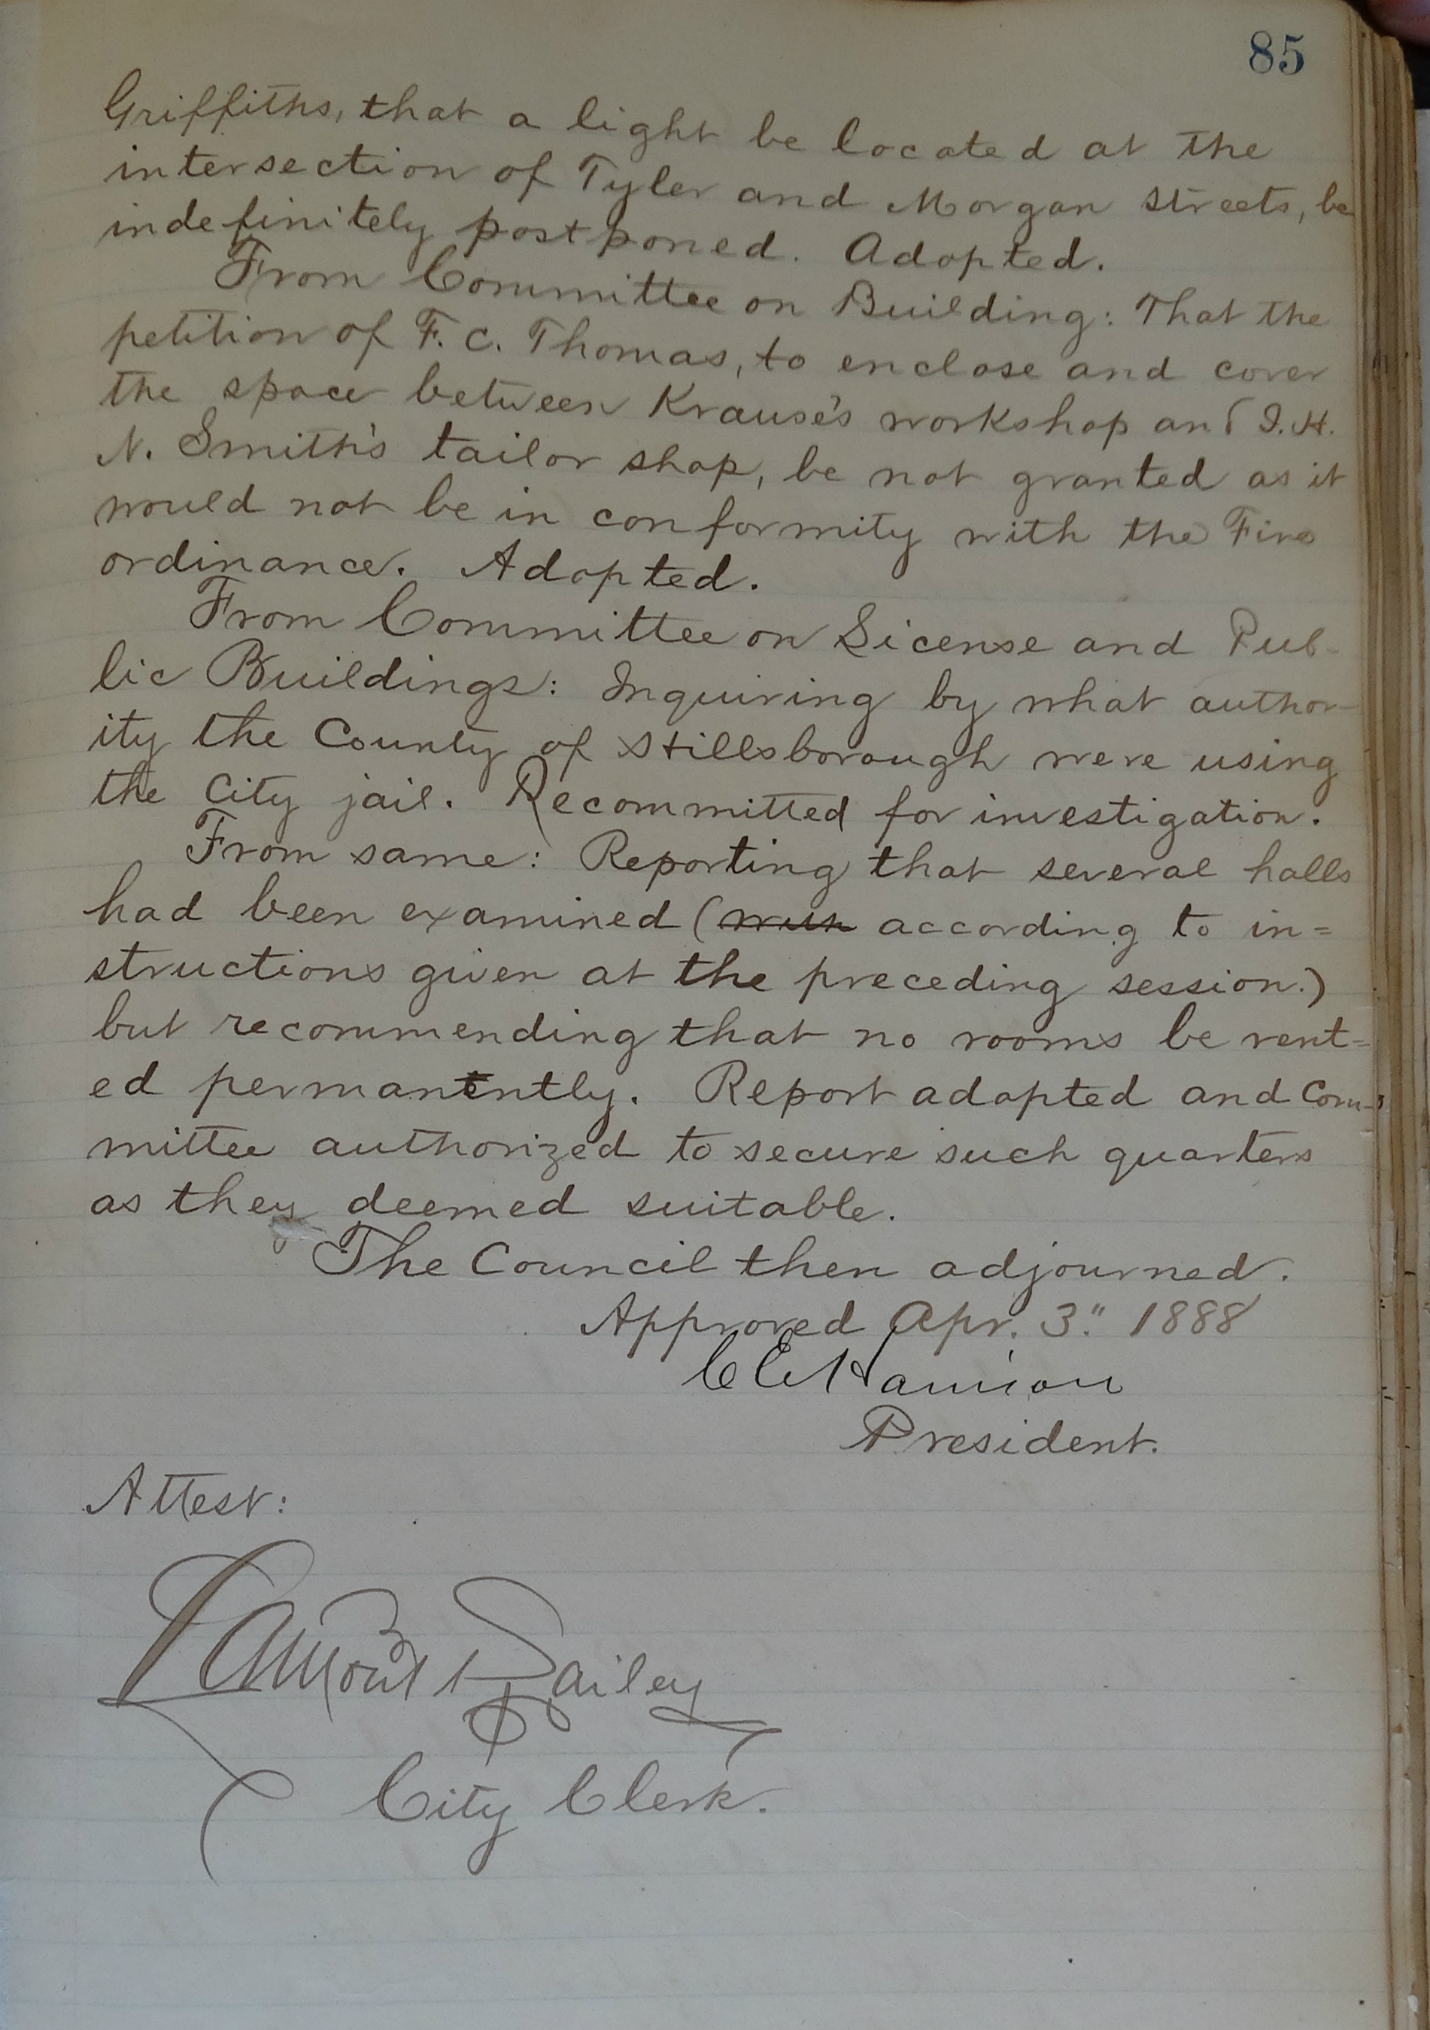 85
Griffiths, that a light be located at the
intersection of Tyler and Morgan streets, be
indefinitely postponed. Adopted.
From Committee on Building: That the
petition of F. C. Thomas, to enclose and cover
the space between Krause's workshop and J. H.
N. Smith's tailor shop, be not granted as it
would not be in conformity with the Fire
ordinance. Adopted.
From Committee on License and Pub-
lic Buildings: Inquiring by what author-
ity the County of Hillsborough were using
the City jail. Recommitted for investigation.
From same: Reporting that several halls
had been examined (with according to in=
structions given at the preceding session.)
but recommending that no rooms be rent=
ed permanently. Report adopted and Com-
mittee authorized to secure such quarters
as they deemed suitable.
The Council then adjourned.
Approved Apr. 3." 1888
C E Harrison
President.
Attest:
Lamont Bailey
City Clerk.